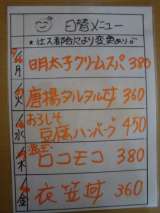 日替メニュー
*仕入都合により変更あり
月 明太子クリームスパ 380
火 唐揚タルタル丼 360
水 おろしそ豆腐ハンバーグ 450
木 ロコモコ 380
金 衣笠丼 360